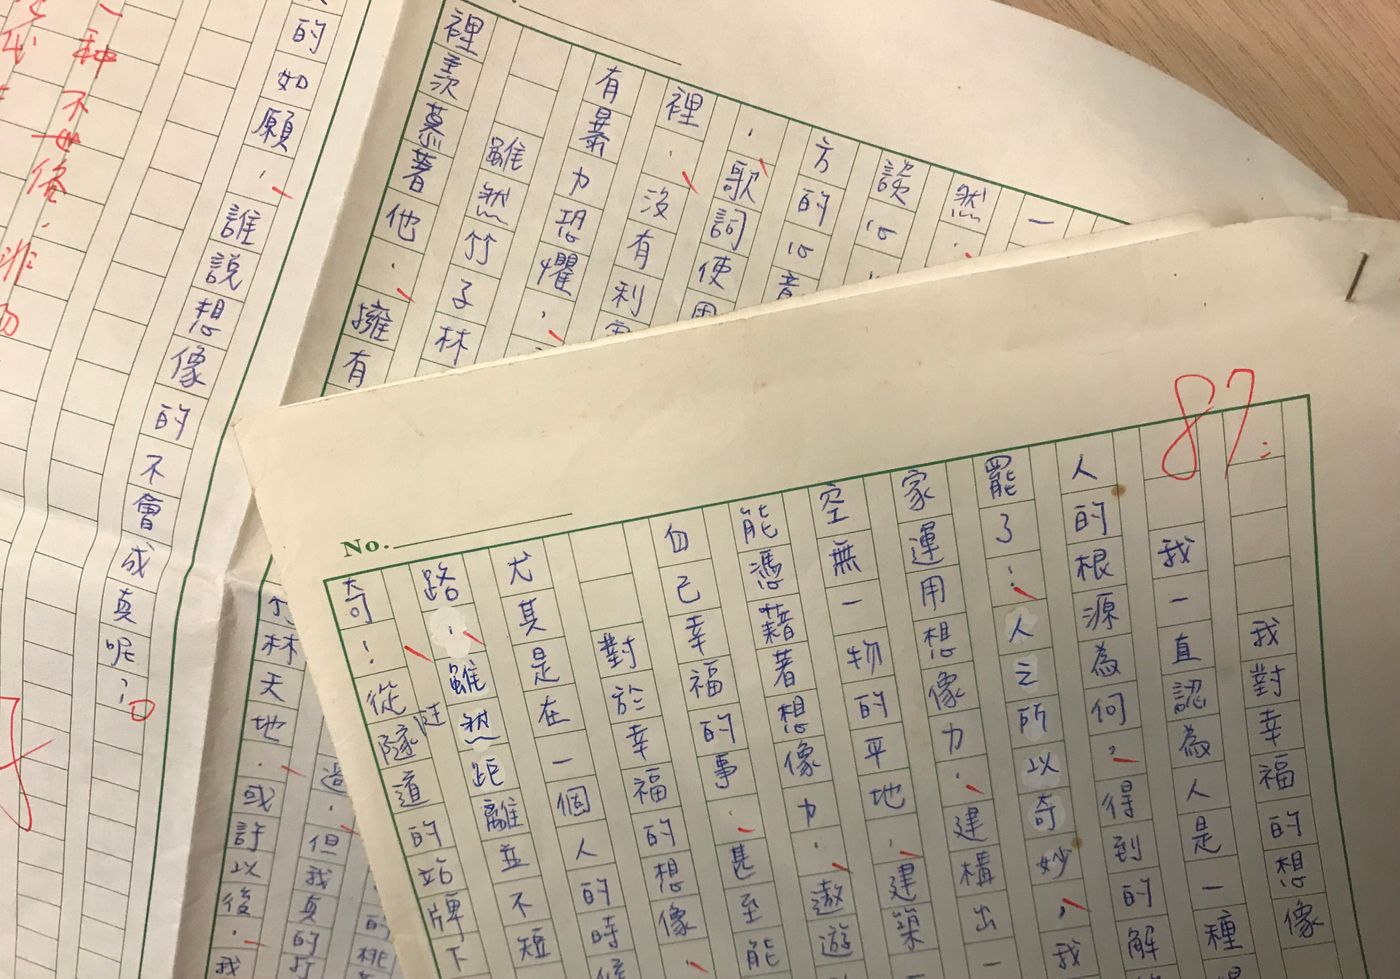 87
我對幸福的想像
我一直認為人是一種
人的根源為何?得到的解
罷了,人之所以奇妙,我
家運用想像力,建構出一
空無一物的平地,建築
能憑藉著想像力,遨遊
自己幸福的事,甚至能
對於幸福的想像,
尤其是在一個人的時候
路,雖然距離並不短
奇!從隧道的站牌下
No.
一
然,
談心,
方的心音
,歌詞使用
裡,沒有利
有暴力恐懼,
雖然竹子林
裡羨慕著他,擁有
過,但我真的
竹林天地,或許以後,我
的如願,誰說想像的不會成真呢?
一種不